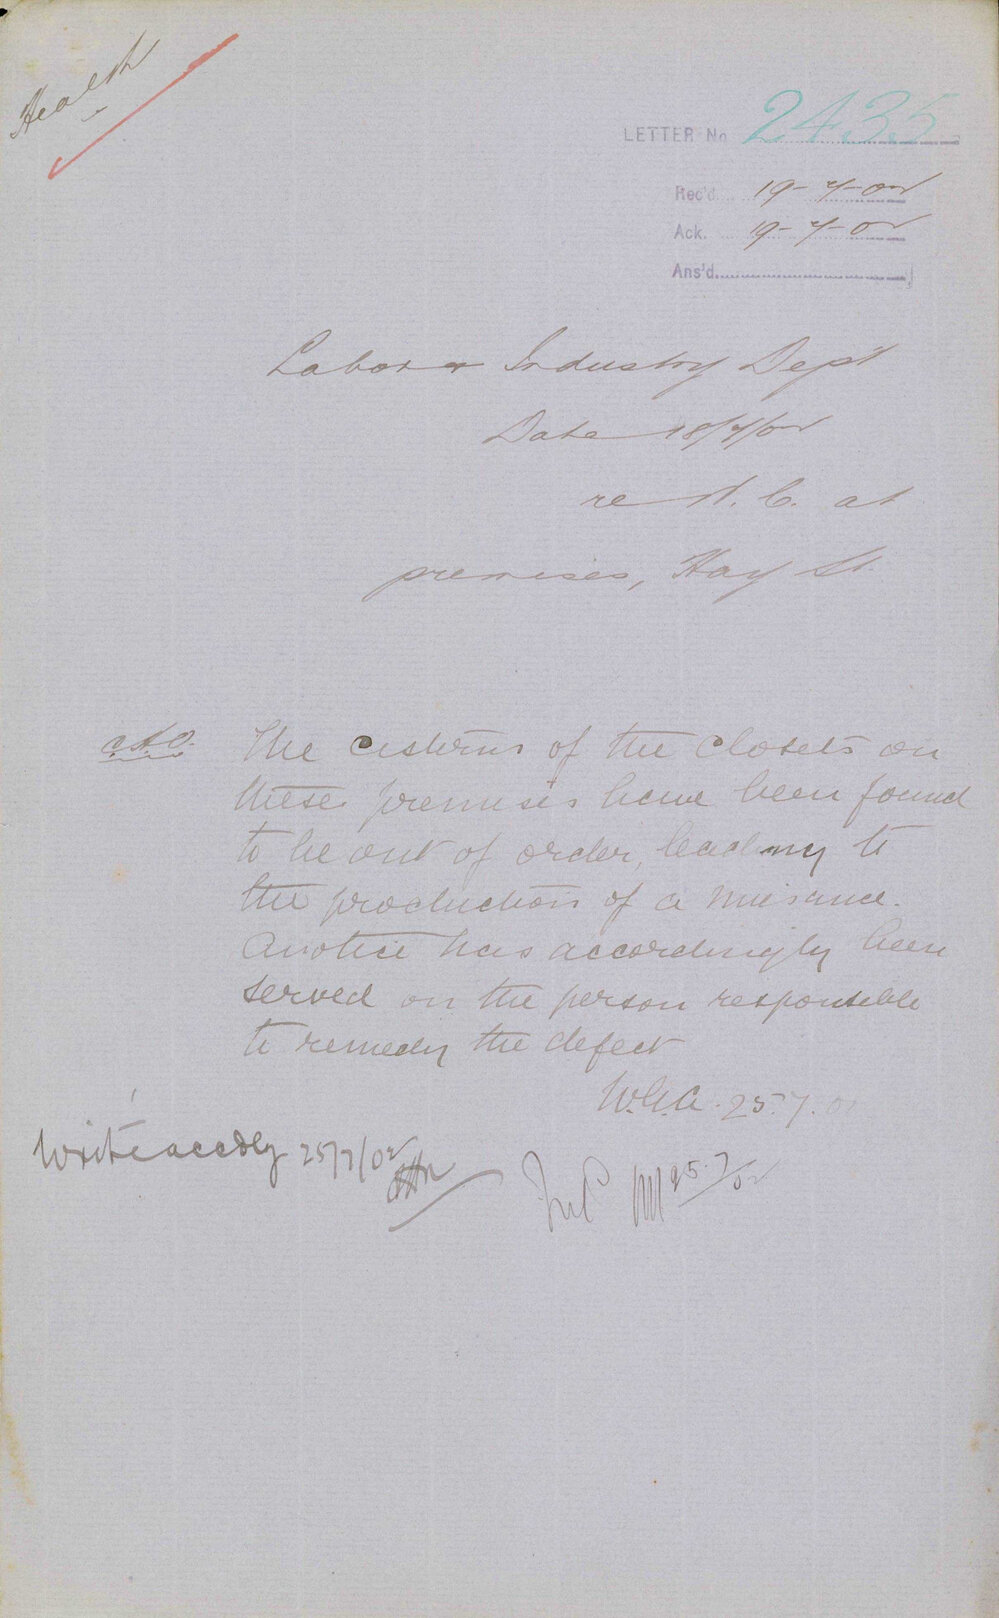 Health
LETTER No 2435
Rec'd 19-7-02
Ack. 19-7-02
Ans'd
Labor & Industry Dept
Date 18/7/02
re W. C. at
premises, Hay St.
The cisterns of the closets on
these premises have been found
to be out of order, leading to
the production of a nuisance.
A notice has accordingly been
served on the person responsible
to remedy the defect
W.G.A. 25.7.02
Write accdly 25/7/02
25.7/02